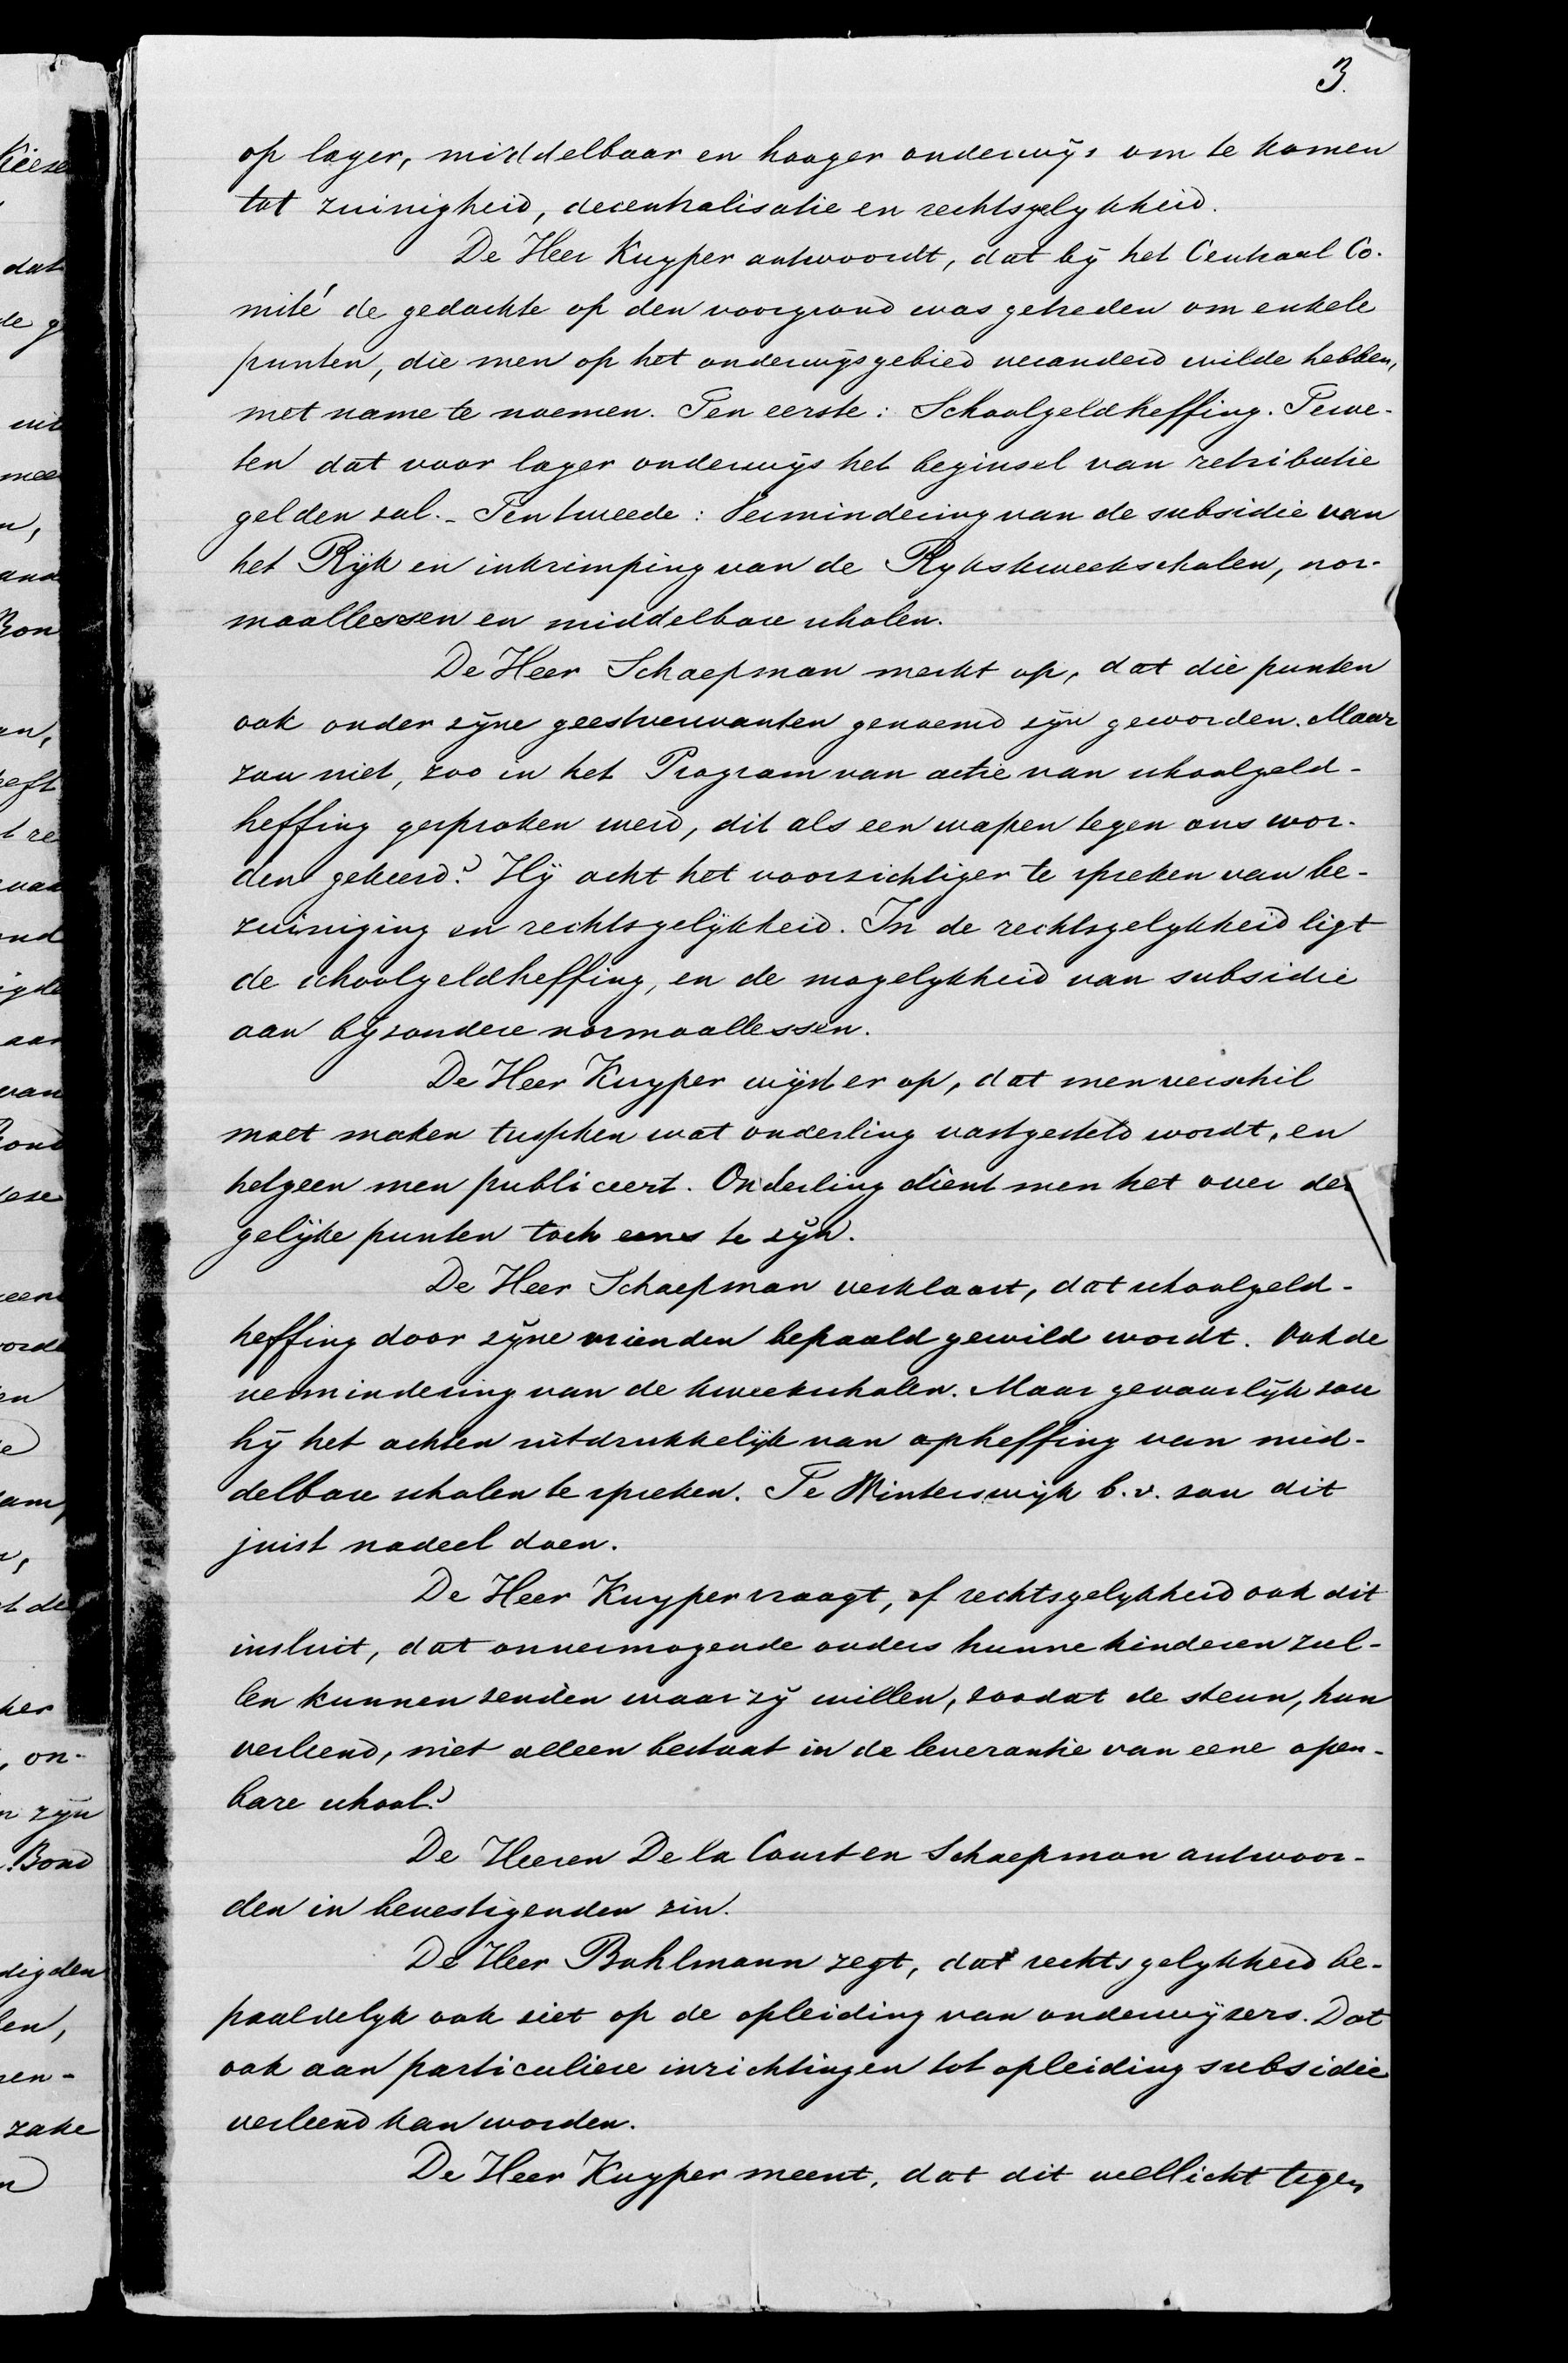 3.
op lager, middelbaar en hooger onderwijs om te komen
tot zuinigheid, decentralisatie en rechtsgelykheid.
De Heer Kuyper antwoordt, dat by het Centraal Co-
mité de gedachte op den voorgrond was getreden om enkele
punten, die men op het onderwijsgebied veranderd wilde hebben,
met name te noemen. Ten eerste: Schoolgeldheffing. Tewe-
ten dat voor lager onderwijs het beginsel van retributie
gelden zal. - Ten tweede: Vermindering van de subsidie van
het Rijk en inkrimping van de Rykskweekscholen, nor-
maallessen en middelbare scholen.
De Heer Schaepman merkt op, dat die punten
ook onder zyne geestverwanten genoemd zyn geworden. Maar
zou niet, zoo in het Program van actie van schoolgeld-
heffing gesproken werd, dit als een wapen tegen ons wor-
den gekeerd? Hij acht het voorzichtiger te spreken van be-
zuiniging en rechtsgelijkheid. In de rechtsgelykheid ligt
de schoolgeldheffing, en de mogelykheid van subsidie
aan byzondere normaallessen.
De Heer Kuyper wijst er op, dat men verschil
moet maken tusschen wat onderling vastgesteld wordt, en
hetgeen men publiceert. Onderling dient men het over der
gelijke punten toch eens te zijn.
De Heer Schaepman verklaart, dat schoolgeld-
heffing door zyne vrienden bepaald gewild wordt. Ook de
vermindering van de kweekscholen. Maar gevaarlijk zou
hy het achten uitdrukkelijk van opheffing van mid-
delbare scholen te spreken. Te Winterswijk b.v. zou dit
juist nadeel doen.
De Heer Kuyper vraagt, of rechtsgelykheid ook dit
insluit, dat onvermogende ouders hunne kinderen zul-
len kunnen zenden waar zy willen, zoodat de steun, hun
verleend, niet alleen bestaat in de leverantie van eene open-
bare school?
De Heeren De la Court en Schaepman antwoor-
den in bevestigenden zin.
De Heer Bahlmann zegt, dat rechtsgelykheid be-
paaldelyk ook ziet op de opleiding van onderwijzers. Dat
ook aan particuliere inrichtingen tot opleiding subsidie
verleend kan worden.
De Heer Kuyper meent, dat dit wellicht tegen